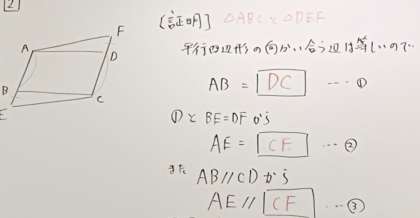 2
F
A
D
B
C
E
[証明] △ABCと△DEF
平行四辺形の向かい合う辺は等しいので
AB = DC …①
①とBE=DFから
AE = CF …②
また
AB//CDから
AE // CF …③